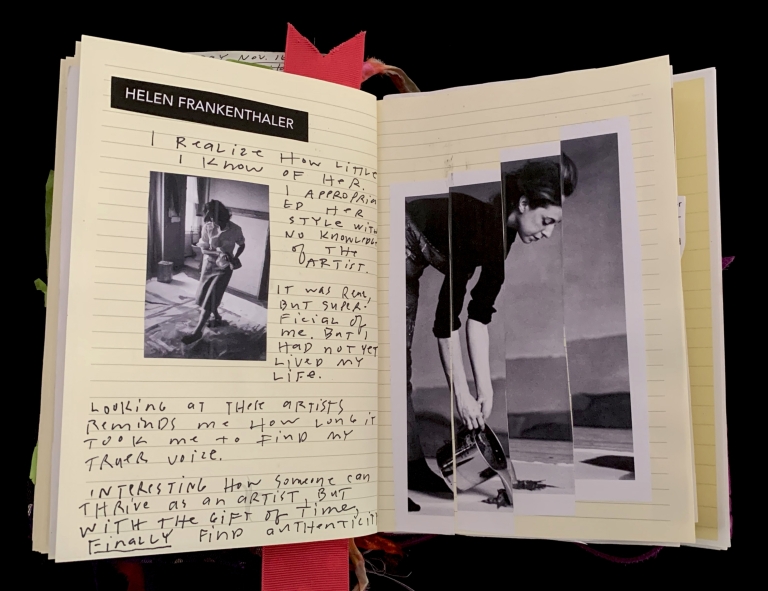 Y NOV. 16
HELEN FRANKENTHALER
I REALIZE HOW LITTLE
I KNOW OF HER.
I APPROPRIAT
ED HER
STYLE WITH
NO KNOWLEDGE
OF THE
ARTIST.
IT WAS REAL,
BUT SUPER-
FICIAL OF
ME. BUT I
HAD NOT YET
LIVED MY
LIFE.
LOOKING AT THESE ARTISTS
REMINDS ME HOW LONG IT
TOOK ME TO FIND MY
TRUER VOICE.
INTERESTING HOW SOMEONE CAN
THRIVE AS AN ARTIST, BUT
WITH THE GIFT OF TIME,
FINALLY FIND AUTHENTICITY